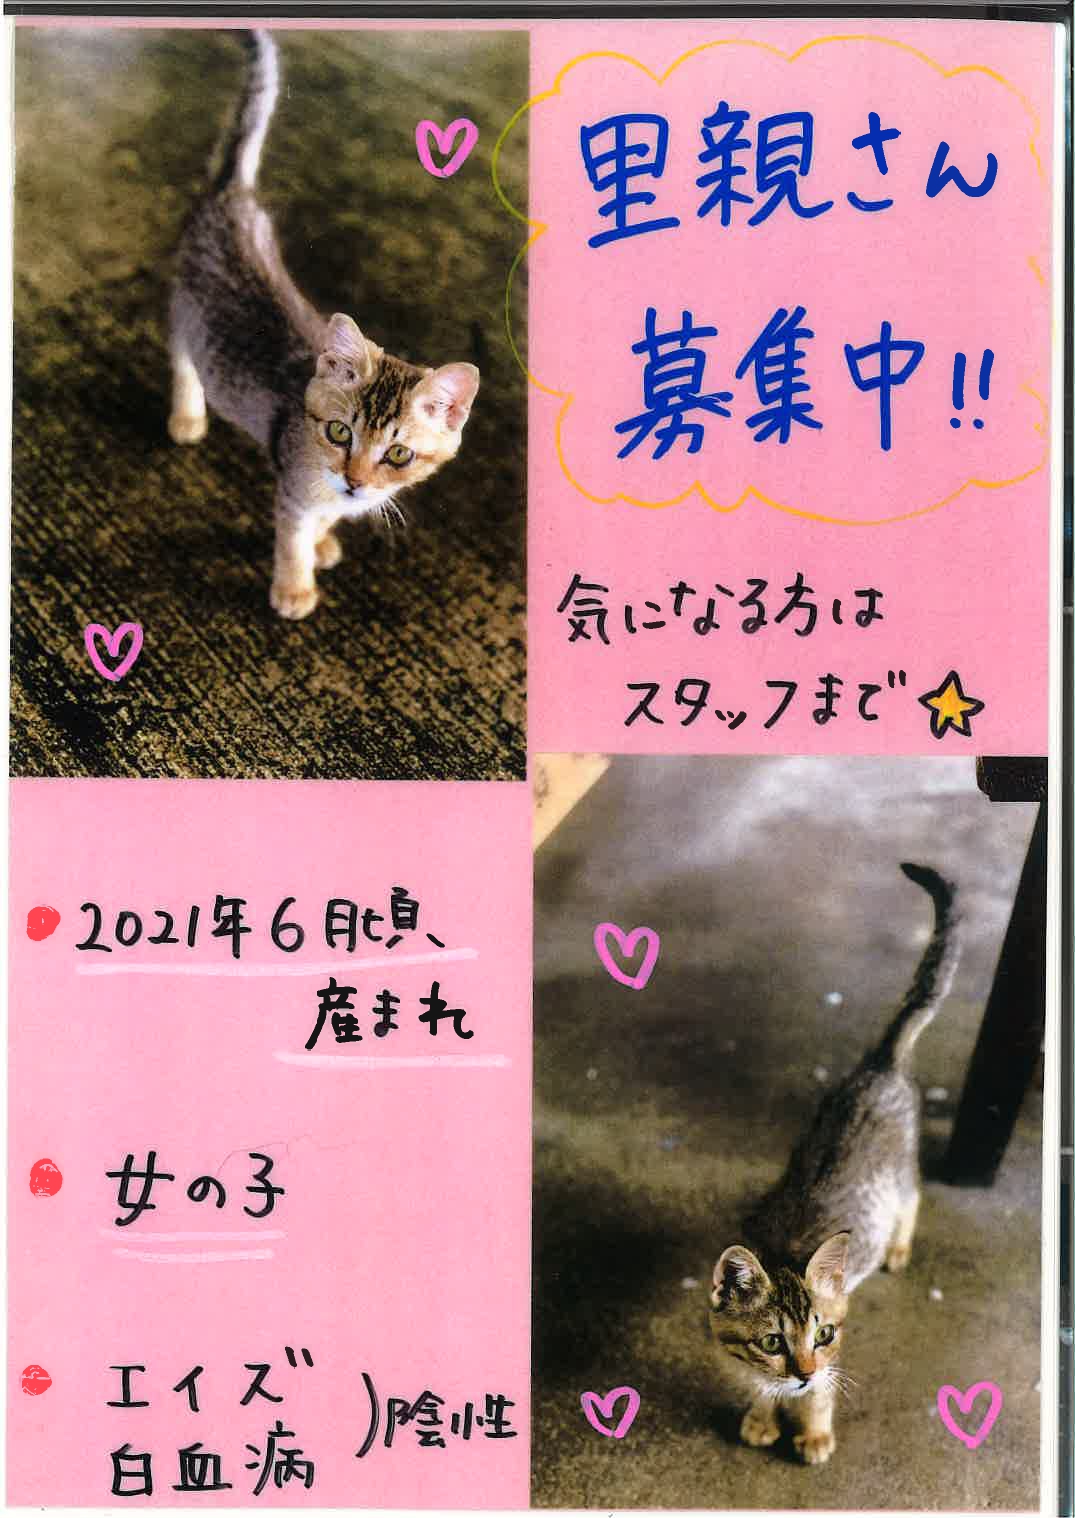 里親さん
募集中!!
気になる方は
スタッフまで
2021年6月頃、
産まれ
女の子
エイズ
白血病
)陰性